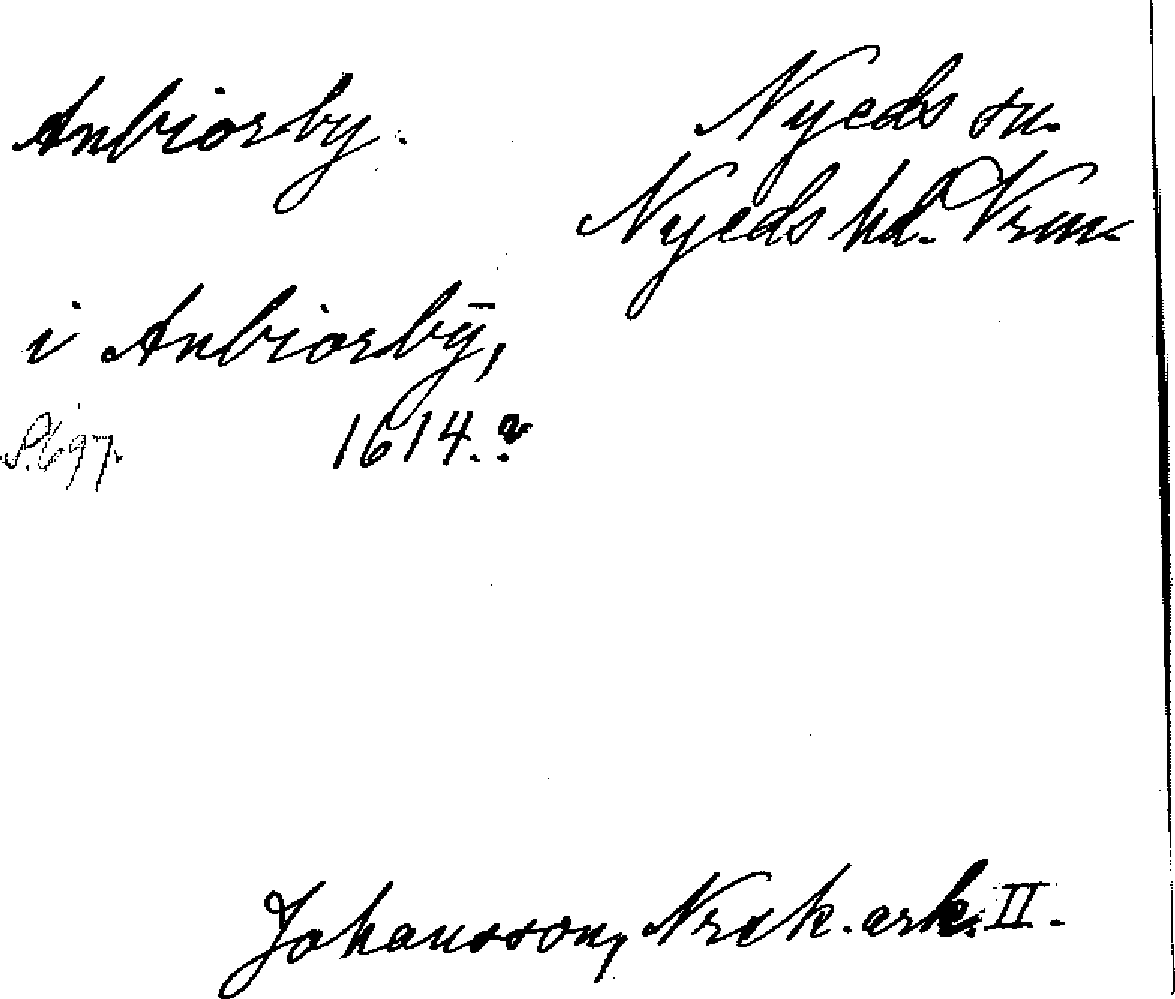 Anbiorby.
Nyeds sn.
Nyeds hd. Vrm.
i Anbiorbÿ,
S. 697. 1614.?
Johansson, Nrdk. ark. II.